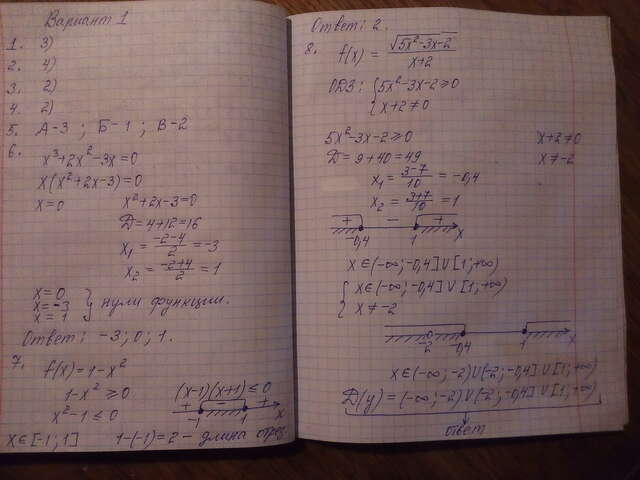 Вариант 1
1. 3)
2. 4)
3. 2)
4. 2)
5. А-3 ; Б-1 ; В-2
6. x³+2x²-3x=0
x(x²+2x-3)=0
x=0 x²+2x-3=0
D=4+12=16
x₁ = (-2-4)/2 = -3
x₂ = (-2+4)/2 = 1
x=0
x=-3 } нули функции.
x=1
Ответ: -3; 0; 1.
7. f(x)=1-x²
1-x²≥0 (x-1)(x+1)≤0
x²-1≤0 + - +
-1 1 x
x∈[-1;1] 1-(-1)=2 - длина отрез.
Ответ: 2.
8. f(x) = √(5x²-3x-2)/(x+2)
ОДЗ: { 5x²-3x-2≥0
x+2≠0
5x²-3x-2≥0 x+2≠0
D=9+40=49 x≠-2
x₁ = (3-7)/10 = -0,4
x₂ = (3+7)/10 = 1
+ - +
-0,4 1 x
x∈(-∞;-0,4]∪[1;+∞)
{ x∈(-∞;-0,4]∪[1;+∞)
x≠-2
-2 -0,4 1 x
x∈(-∞;-2)∪(-2;-0,4]∪[1;+∞)
D(y)=(-∞;-2)∪(-2;-0,4]∪[1;+∞)
ответ